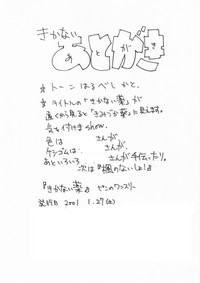 きかない
あとがき
* トーンはるべしかと。
* タイトルの「きかない薬」が
遠くから見ると「きみづか薬」に見えます。
気も付けまshow.
色は さんが
ケシゴムは、 さんが、
あといろいろ さんが手伝ったり。
次は『楓のないしょ!』
『きかない薬』 ピンのワンスリー
発行日 2001 1.27(土)